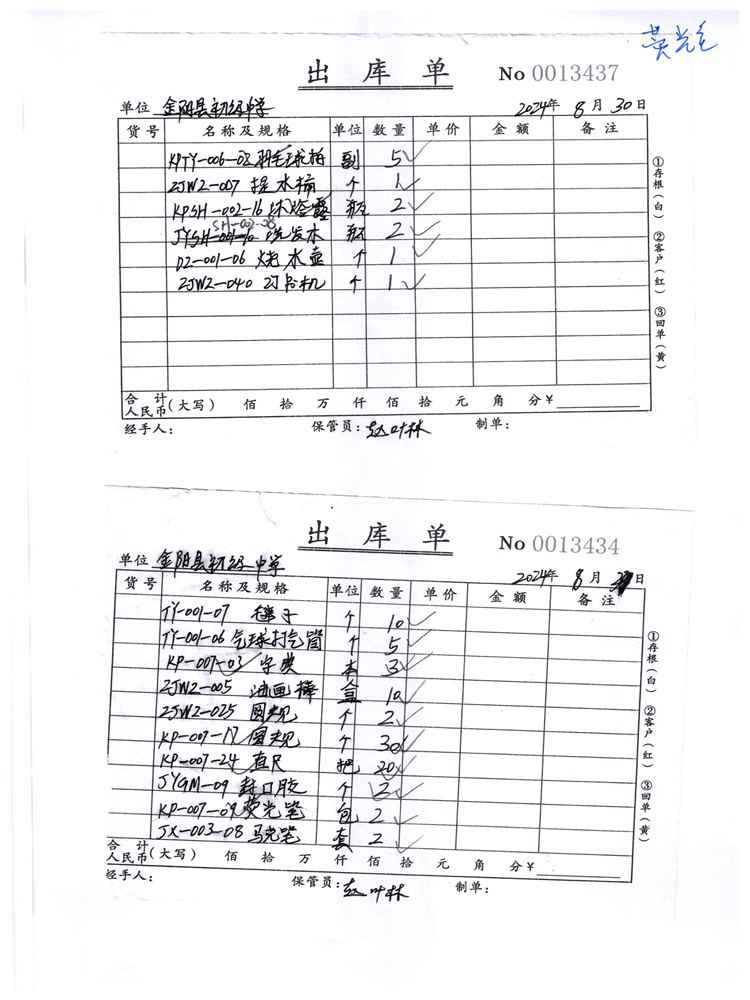 荧光笔
出 库 单
No 0013437
单位 金阳县初级中学 2024年 8 月 30 日
货号 名称及规格 单位 数量 单价 金额 备注
KPTY-006-02 羽毛球拍 副 5✓
ZJWZ-007 提水桶 个 1✓
KPSH-002-16 沐浴露 瓶 2✓
SH-002-08
JYSH-001-10 洗发水 瓶 2✓
DZ-001-06 烧水壶 个 1✓
ZJWZ-040 订书机 个 1✓
合计
人民币(大写) 佰 拾 万 仟 佰 拾 元 角 分 ¥
经手人: 保管员: 赵叶林 制单:
①存根(白) ②客户(红) ③回单(黄)
出 库 单
No 0013434
单位 金阳县初级中学 2024年 8 月 日
货号 名称及规格 单位 数量 单价 金额 备注
TY-001-07 毽子 个 10✓
TY-001-06 气球打气筒 个 5✓
KP-007-03 字典 本 3✓
ZJWZ-005 油画棒 盒 10✓
ZJWZ-025 圆规 个 2✓
KP-007-17 圆规 个 30✓
KP-007-24 直尺 把 20✓
JYGM-09 封口胶 个 2✓
KP-007-09 荧光笔 包 2✓
JX-003-08 马克笔 套 2✓
合计
人民币(大写) 佰 拾 万 仟 佰 拾 元 角 分 ¥
经手人: 保管员: 赵叶林 制单:
①存根(白) ②客户(红) ③回单(黄)